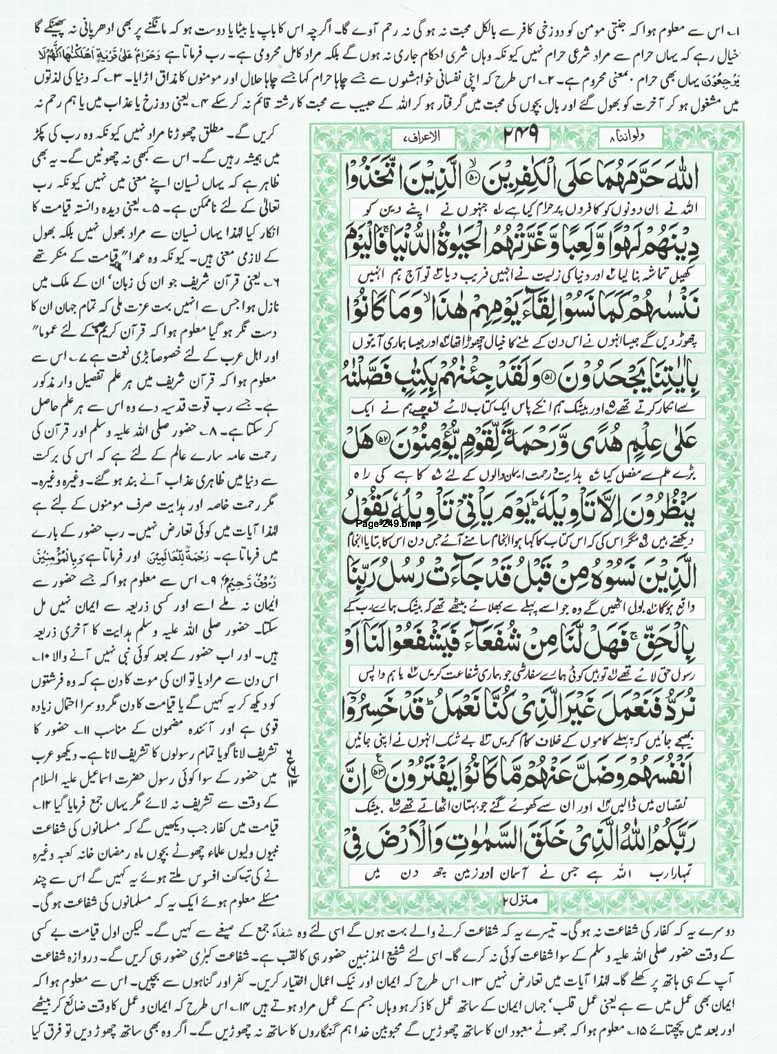 ۱۔ اس سے معلوم ہوا کہ جنتی مومن کو دوزخی کافر سے بالکل محبت نہ ہو گی نہ رحم آوے گا۔ اگرچہ اس کا باپ یا بیٹا یا دوست ہو کہ مانگنے پر بھی ادھر پانی نہ پھینکے گا
خیال رہے کہ یہاں حرام سے مراد شرعی حرام نہیں کیونکہ وہاں شرعی احکام جاری نہ ہوں گے بلکہ مراد کامل محرومی ہے۔ رب فرماتا ہے وَحَرَامٌ عَلٰى قَرْيَةٍ اَهْلَكْنٰهَا اَنَّهُمْ لَا
يَرْجِعُوْنَ یہاں بھی حرام بمعنی محروم ہے۔ ۲۔ اس طرح کہ اپنی نفسانی خواہشوں سے جسے چاہا حرام کہا جسے چاہا حلال اور مومنوں کا مذاق اڑایا۔ ۳۔ کہ دنیا کی لذتوں
میں مشغول ہو کر آخرت کو بھول گئے اور بال بچوں کی محبت میں گرفتار ہو کر اللہ کے حبیب سے محبت کا رشتہ قائم نہ کر سکے ۴۔ یعنی دوزخ یا عذاب میں یا ہم رحم نہ
ولواننا ۸
۲۴۹
الاعراف ۷
اللّٰهَ حَرَّمَهُمَا عَلَى الْكٰفِرِيْنَ ۵۰ الَّذِيْنَ اتَّخَذُوْا
اللہ نے ان دونوں کو کافروں پر حرام کیا ہے جنہوں نے اپنے دین کو
دِيْنَهُمْ لَهْوًا وَّلَعِبًا وَّغَرَّتْهُمُ الْحَيٰوةُ الدُّنْيَا فَالْيَوْمَ
کھیل تماشہ بنا لیا اور دنیا کی زیست نے انہیں فریب دیا تو آج ہم انہیں
نَنْسٰىهُمْ كَمَا نَسُوْا لِقَآءَ يَوْمِهِمْ هٰذَا وَمَا كَانُوْا
چھوڑ دیں گے جیسا انہوں نے اس دن کے ملنے کا خیال چھوڑا تھا اور جیسا ہماری آیتوں
بِاٰيٰتِنَا يَجْحَدُوْنَ ۵۱ وَلَقَدْ جِئْنٰهُمْ بِكِتٰبٍ فَصَّلْنٰهُ
سے انکار کرتے تھے اور بیشک ہم انکے پاس ایک کتاب لائے جسے ہم نے ایک
عَلٰى عِلْمٍ هُدًى وَّرَحْمَةً لِّقَوْمٍ يُّؤْمِنُوْنَ ۵۲ هَلْ
بڑے علم سے مفصل کیا ہدایت و رحمت ایمان والوں کے لئے کاہے کی راہ
يَنْظُرُوْنَ اِلَّا تَاْوِيْلَهٗ يَوْمَ يَاْتِيْ تَاْوِيْلُهٗ يَقُوْلُ
Page-249.bmp
دیکھتے ہیں مگر اس کی کہ اس کتاب کا کہا ہوا انجام سامنے آئے جس دن اس کا بتایا انجام
الَّذِيْنَ نَسُوْهُ مِنْ قَبْلُ قَدْ جَآءَتْ رُسُلُ رَبِّنَا
واقع ہوگا بول اٹھیں گے وہ جو اسے پہلے سے بھلائے بیٹھے تھے کہ بیشک ہمارے رب کے
بِالْحَقِّ فَهَلْ لَّنَا مِنْ شُفَعَآءَ فَيَشْفَعُوْا لَنَا اَوْ
رسول حق لائے تھے تو ہیں کوئی ہمارے سفارشی جو ہماری شفاعت کریں یا ہم واپس
نُرَدُّ فَنَعْمَلَ غَيْرَ الَّذِيْ كُنَّا نَعْمَلُ قَدْ خَسِرُوْا
بھیجے جائیں کہ پہلے کاموں کے خلاف کام کریں بے شک انہوں نے اپنی جانیں
اَنْفُسَهُمْ وَضَلَّ عَنْهُمْ مَّا كَانُوْا يَفْتَرُوْنَ ۵۳ اِنَّ
نقصان میں ڈالیں اور ان سے کھوئے گئے جو بہتان اٹھاتے تھے بیشک
رَبَّكُمُ اللّٰهُ الَّذِيْ خَلَقَ السَّمٰوٰتِ وَالْاَرْضَ فِيْ
تمہارا رب اللہ ہے جس نے آسمان اور زمین چھ دن میں
منزل ۲
کریں گے۔ مطلق چھوڑنا مراد نہیں کیونکہ وہ رب کی پکڑ
میں ہمیشہ رہیں گے۔ اس سے کبھی نہ چھوٹیں گے۔ یہ بھی
ظاہر ہے کہ یہاں نسیان اپنے معنی میں نہیں کیونکہ رب
تعالٰی کے لئے ناممکن ہے۔ ۵۔ یعنی دیدہ دانستہ قیامت کا
انکار کیا لہٰذا یہاں نسیان سے مراد بھول نہیں بلکہ بھول
کے لازمی معنی ہیں۔ کیونکہ وہ عمداً قیامت کے منکر تھے
۶۔ یعنی قرآن شریف جو ان کی زبان' ان کے ملک میں
نازل ہوا جس سے انہیں بہت عزت ملی کہ تمام جہان ان کا
دست نگر ہو گیا معلوم ہوا کہ قرآن کریم سب کے لئے عموماً
اور اہل عرب کے لئے خصوصاً بڑی نعمت ہے ۷۔ اس سے
معلوم ہوا کہ قرآن شریف میں ہر علم تفصیل وار مذکور
ہے۔ جسے رب قوت قدسیہ دے وہ اس سے ہر علم حاصل
کر سکتا ہے۔ ۸۔ حضور صلی اللہ علیہ وسلم اور قرآن کی
رحمت عامہ سارے عالم کے لئے ہے کہ اس کی برکت
سے دنیا میں ظاہری عذاب آنے بند ہو گئے۔ وغیرہ وغیرہ۔
مگر رحمت خاصہ اور ہدایت صرف مومنوں کے لئے ہے
لہٰذا آیات میں کوئی تعارض نہیں۔ رب حضور کے بارے
میں فرماتا ہے۔ رَحْمَةً لِّلْعٰلَمِيْنَ اور فرماتا ہے وَبِالْمُؤْمِنِيْنَ
رَءُوْفٌ رَّحِيْمٌ ۹۔ اس سے معلوم ہوا کہ جسے حضور سے
ایمان نہ ملے اسے اور کسی ذریعہ سے ایمان نہیں مل
سکتا۔ حضور صلی اللہ علیہ وسلم ہدایت کا آخری ذریعہ
ہیں۔ اور اب حضور کے بعد کوئی نبی نہیں آنے والا ۱۰۔
اس دن سے مراد یا تو ان کی موت کا دن ہے کہ وہ فرشتوں
کو دیکھ کر یہ کہیں گے یا قیامت کا دن مگر دوسرا احتمال زیادہ
قوی ہے اور آئندہ مضمون کے مناسب ۱۱۔ حضور کا
تشریف لانا گویا تمام رسولوں کا تشریف لانا ہے۔ دیکھو عرب
میں حضور کے سوا کوئی رسول حضرت اسماعیل علیہ السلام
کے وقت سے تشریف نہ لائے مگر یہاں جمع فرمایا گیا ۱۲۔
قیامت میں کفار جب دیکھیں گے کہ مسلمانوں کی شفاعت
نبیوں ولیوں علماء چھوٹے بچوں ماہ رمضان خانہ کعبہ وغیرہ
نے کی تب کف افسوس ملتے ہوئے یہ کہیں گے اس سے چند
مسئلے معلوم ہوئے ایک یہ کہ مسلمانوں کی شفاعت ہو گی۔
دوسرے یہ کہ کفار کی شفاعت نہ ہوگی۔ تیسرے یہ کہ شفاعت کرنے والے بہت ہوں گے اسی لئے وہ شفعاء جمع کے صیغے سے کہیں گے۔ لیکن اول قیامت بے کسی
کے وقت حضور صلی اللہ علیہ وسلم کے سوا شفاعت کوئی نہ کرے گا۔ اسی لئے شفیع المذنبین حضور ہی کا لقب ہے۔ شفاعت کبرٰی حضور ہی کریں گے۔ دروازہ شفاعت
آپ کے ہی ہاتھ پر کھلے گا۔ لہٰذا آیات میں تعارض نہیں ۱۳۔ اس طرح کہ ایمان اور نیک اعمال اختیار کریں۔ کفر اور گناہوں سے بچیں۔ اس سے معلوم ہوا کہ
ایمان بھی عمل میں سے ہے یعنی عمل قلب' جہاں ایمان کے ساتھ عمل کا ذکر ہو وہاں جسم کے عمل مراد ہوتے ہیں ۱۴۔ اس طرح کہ ایمان و عمل کا وقت ضائع کر بیٹھے
اور بعد میں پچھتائے ۱۵۔ معلوم ہوا کہ جھوٹے معبود ان کا ساتھ چھوڑیں گے محبوبین خدا ہم گنہگاروں کا ساتھ نہ چھوڑیں گے۔ اگر وہ بھی ساتھ چھوڑ دیں تو فرق کیا